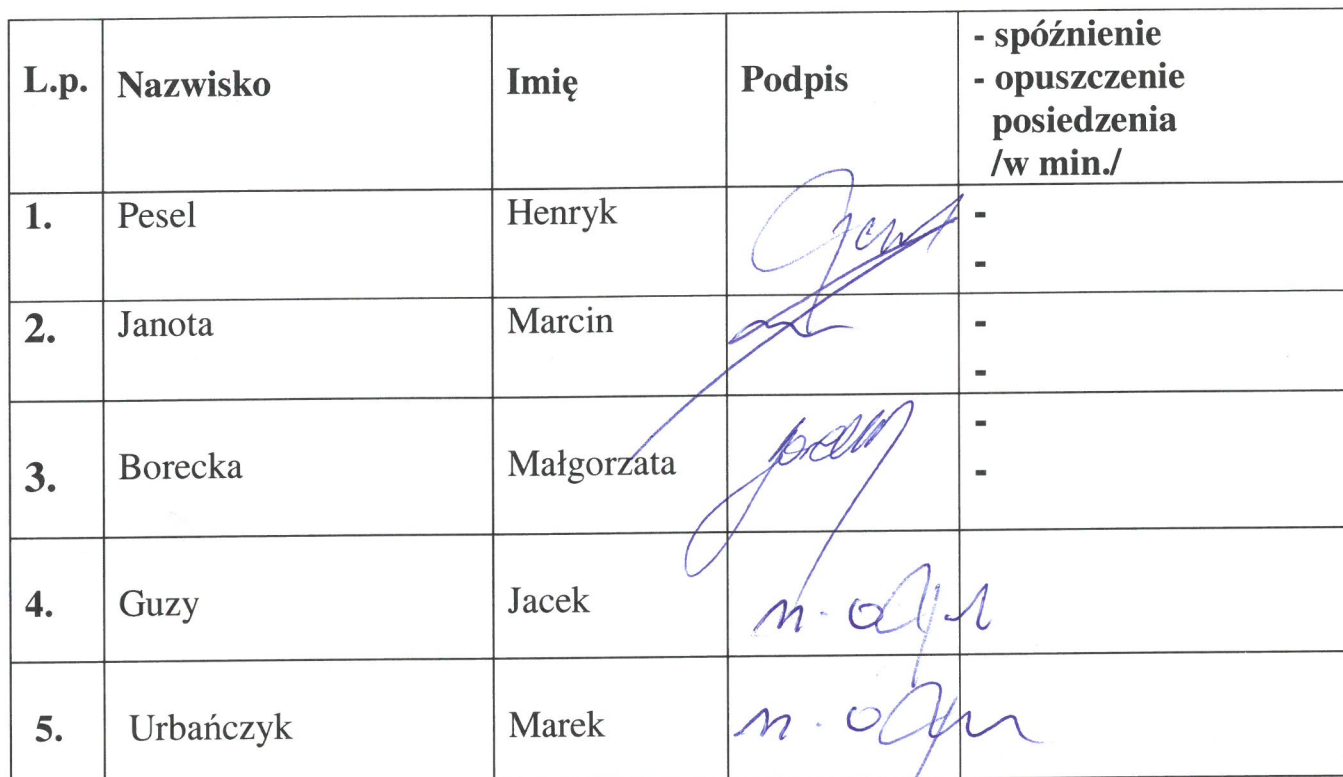 L.p. Nazwisko Imię Podpis - spóźnienie
- opuszczenie
posiedzenia
/w min./
1. Pesel Henryk -
-
2. Janota Marcin -
-
3. Borecka Małgorzata -
-
4. Guzy Jacek
5. Urbańczyk Marek